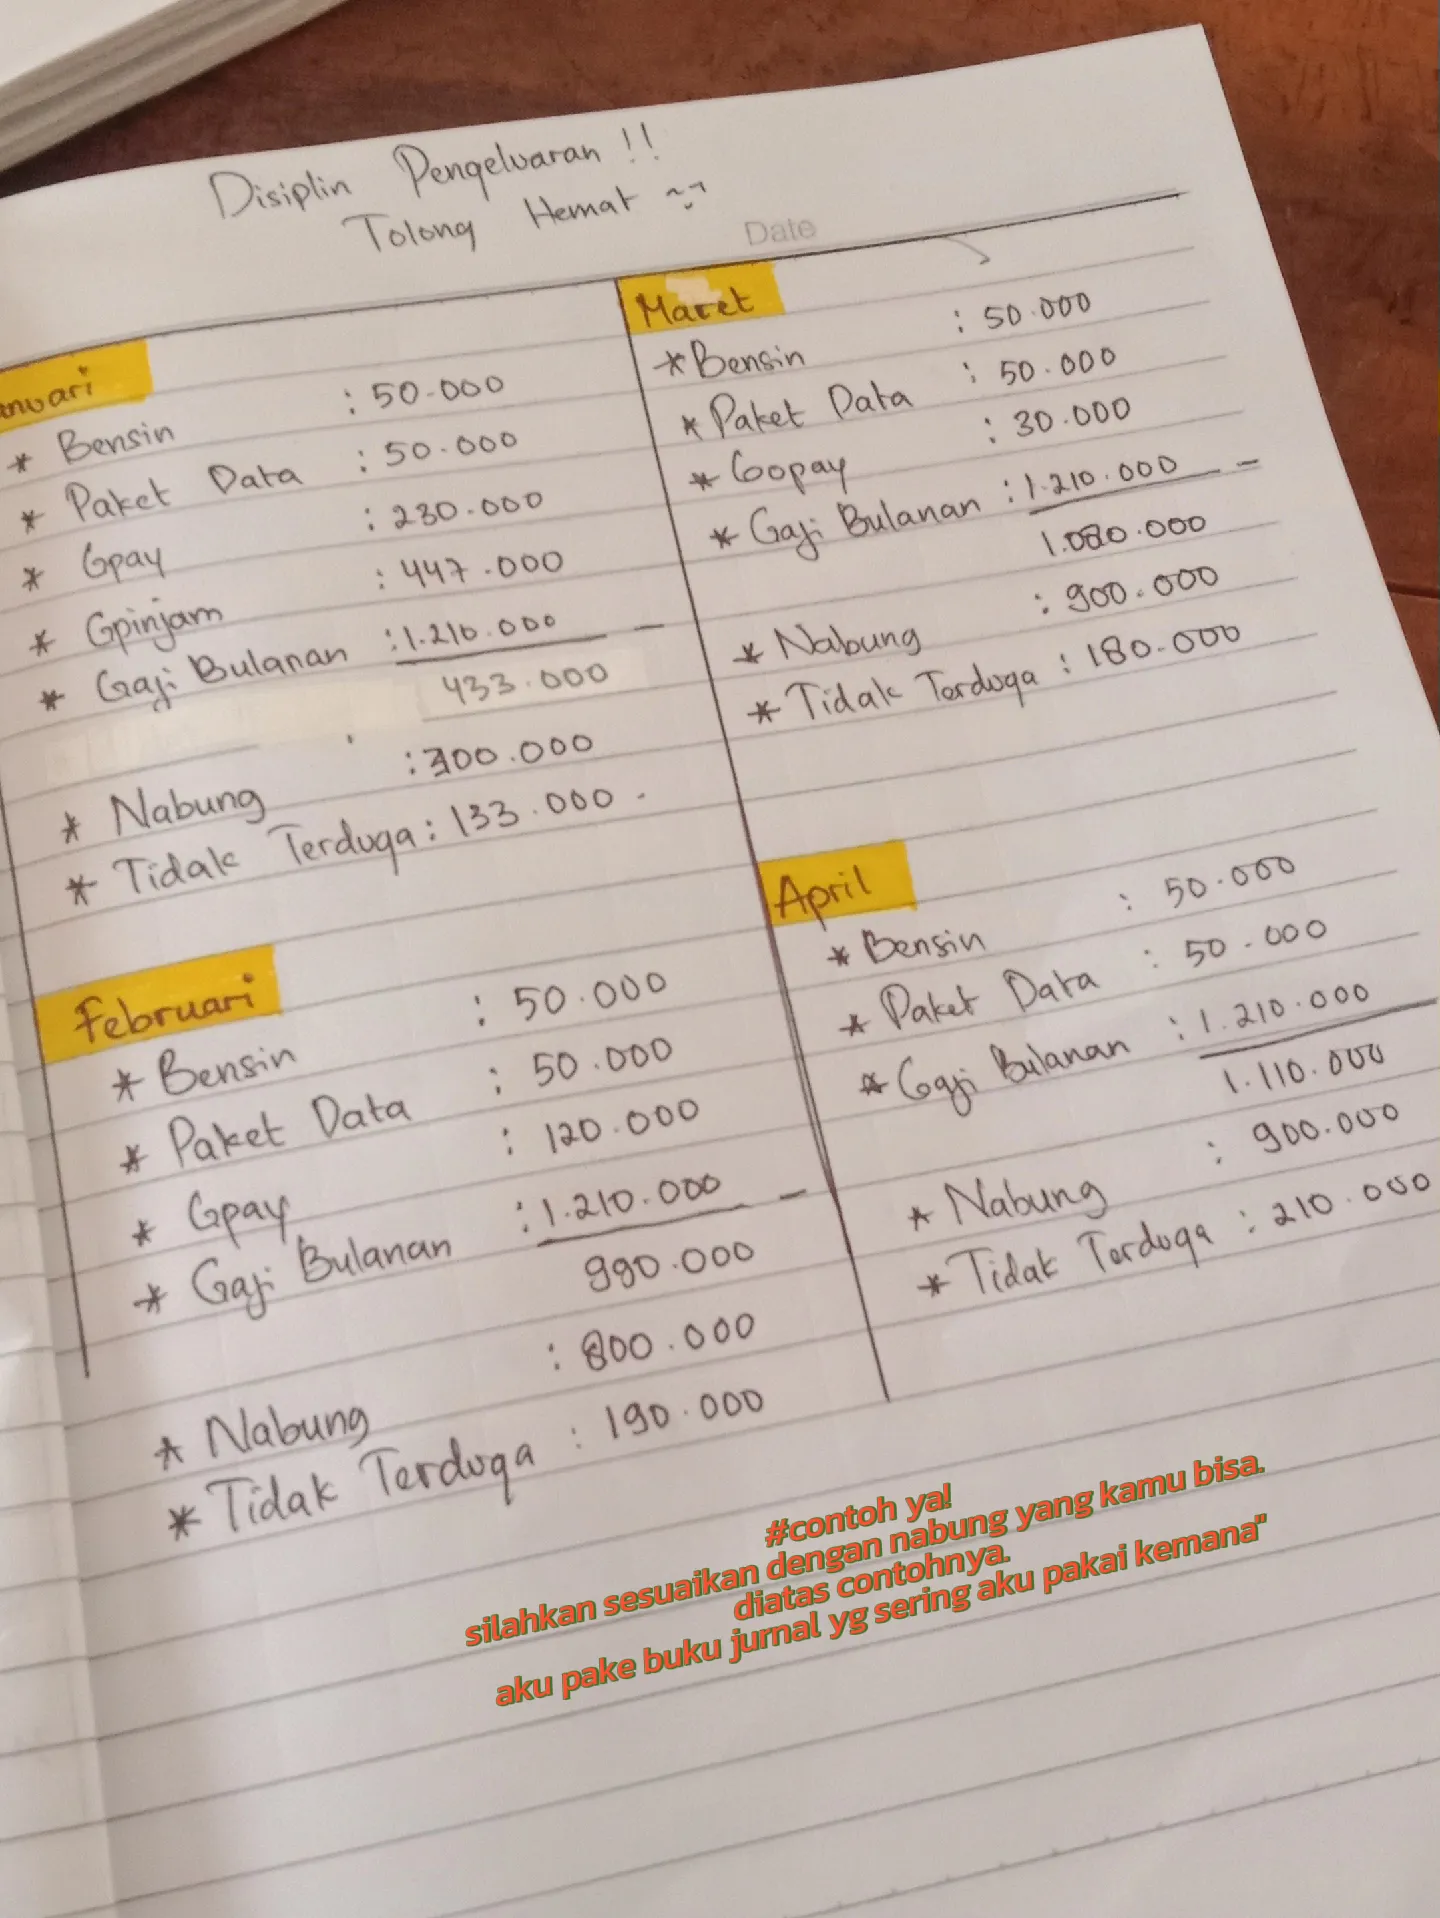 Disiplin Pengeluaran !!
Tolong Hemat
Date
anuari
* Bensin : 50.000
* Paket Data : 50.000
* Gpay : 230.000
* Gpinjam : 447.000
* Gaji Bulanan : 1.210.000 –
433.000
* Nabung : 300.000
* Tidak Terduga : 133.000
Februari
* Bensin : 50.000
* Paket Data : 50.000
* Gpay : 120.000
* Gaji Bulanan : 1.210.000 –
990.000
* Nabung : 800.000
* Tidak Terduga : 190.000
Maret
* Bensin : 50.000
* Paket Data : 50.000
* Gopay : 30.000
* Gaji Bulanan : 1.210.000 –
1.080.000
* Nabung : 900.000
* Tidak Terduga : 180.000
April
* Bensin : 50.000
* Paket Data : 50.000
* Gaji Bulanan : 1.210.000
1.110.000
* Nabung : 900.000
* Tidak Terduga : 210.000
#contoh ya!
silahkan sesuaikan dengan nabung yang kamu bisa.
diatas contohnya.
aku pake buku jurnal yg sering aku pakai kemana"